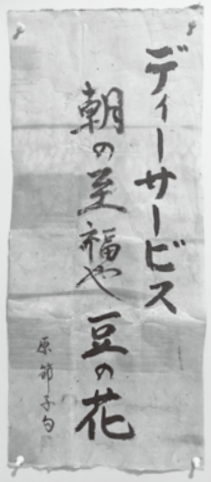 ディーサービス
朝の至福や豆の花
原節子句